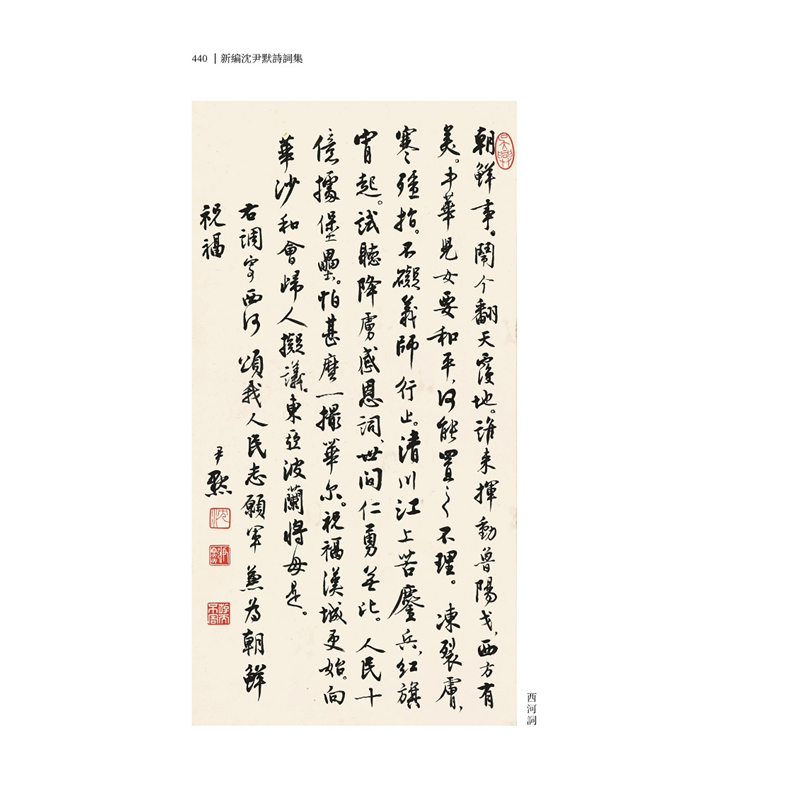 440 | 新編沈尹默詩詞集
朝鮮事。鬧个翻天覆地。誰来揮動魯陽戈，西方有
美。中華兒女要和平，何能置之不理。凍裂膚，
寒殭指。不礙義師行止。清川江上苦鏖兵，紅旗
宵起。試聽降虜感恩詞，世间仁勇無比。人民十
億據堡壘。怕甚麽一撮華尔。祝福漢城更始。向
華沙和會歸人擬議。東亞波蘭將毋是。
右調寄西河 頌我人民志願軍 兼为朝鮮
祝福
尹默
西河詞